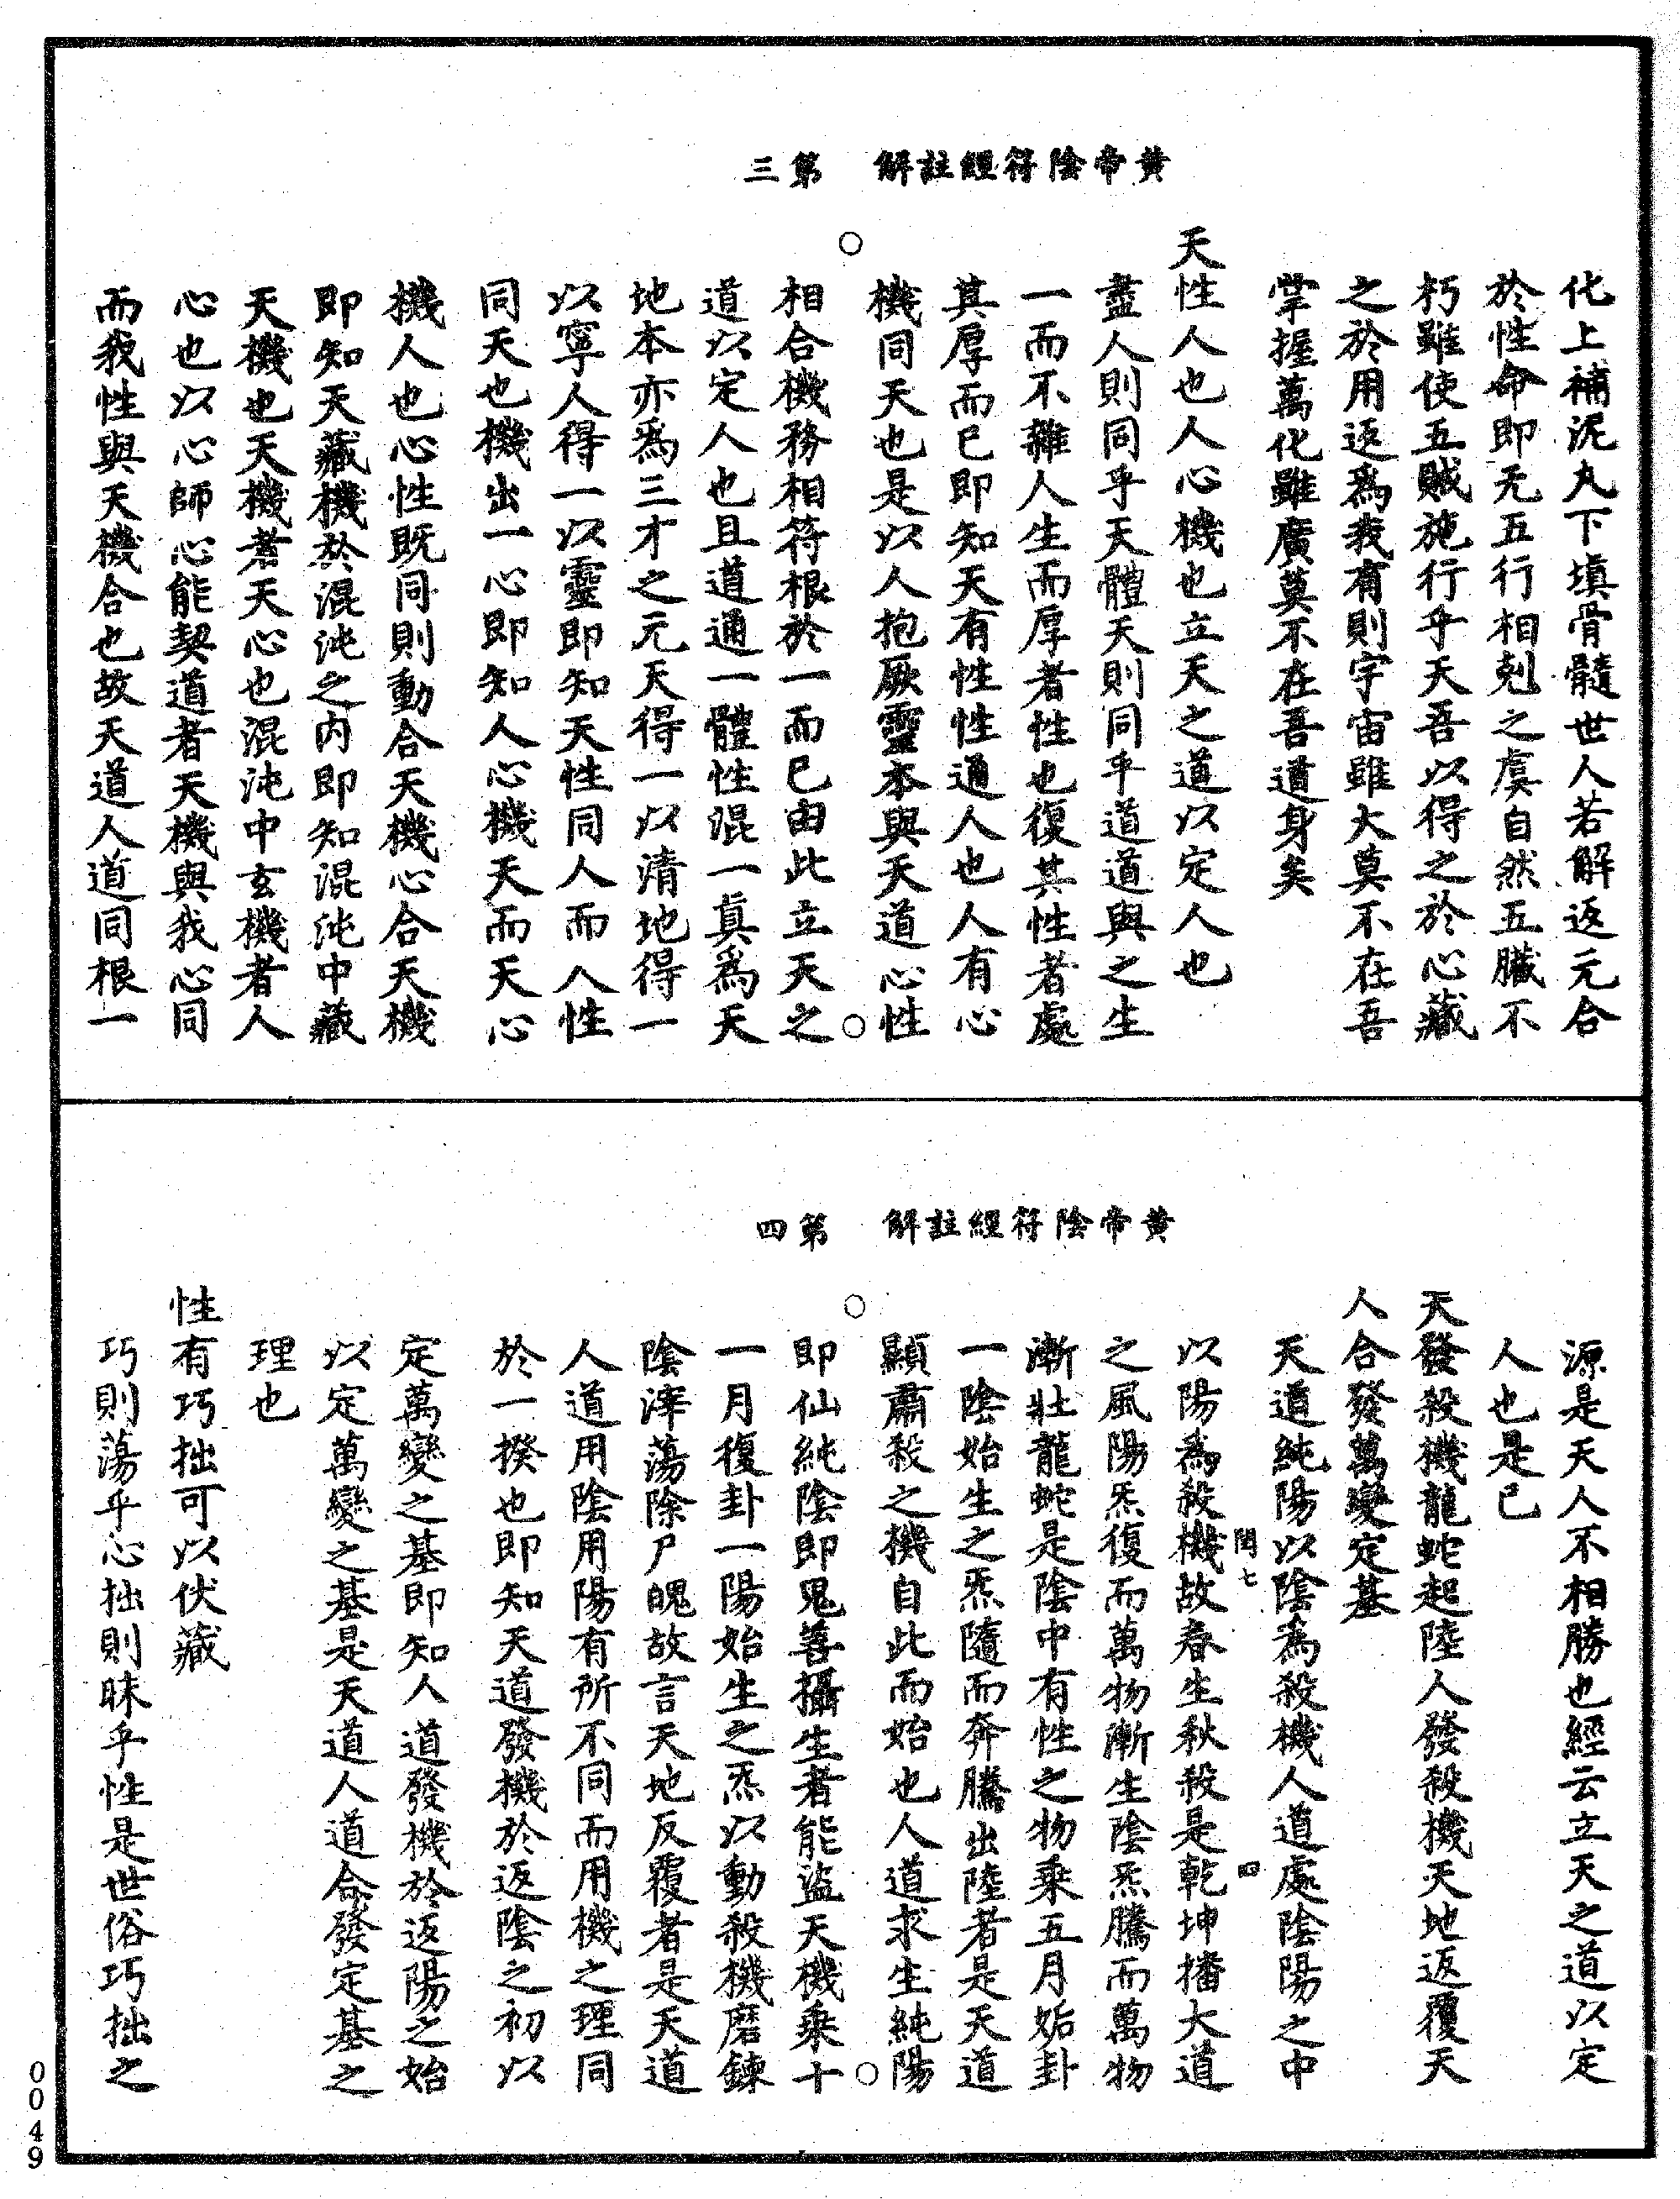 黃帝陰符經註解　第三
化上補泥丸下填骨髓世人若解返元合
於性命即无五行相剋之虞自然五臟不
朽雖使五賊施行乎天吾以得之於心藏
之於用返爲我有則宇宙雖大莫不在吾
掌握萬化雖廣莫不在吾道身矣
天性人也人心機也立天之道以定人也
盡人則同乎天體天則同乎道道與之生
一而不雜人生而厚者性也復其性者處
其厚而已即知天有性性通人也人有心
機同天也是以人抱厥靈本與天道心性
相合機務相符根於一而已由此立天之
道以定人也且道通一體性混一眞爲天
地本亦爲三才之元天得一以清地得一
以寧人得一以靈即知天性同人而人性
同天也機出一心即知人心機天而天心
機人也心性既同則動合天機心合天機
即知天藏機於混沌之內即知混沌中藏
天機也天機者天心也混沌中玄機者人
心也以心師心能契道者天機與我心同
而我性與天機合也故天道人道同根一
黃帝陰符經註解　第四
源是天人不相勝也經云立天之道以定
人也是已
天發殺機龍蛇起陸人發殺機天地返覆天
人合發萬變定基
天道純陽以陰爲殺機人道處陰陽之中
閏七　四
以陽爲殺機故春生秋殺是乾坤播大道
之風陽炁復而萬物漸生陰炁騰而萬物
漸壯龍蛇是陰中有性之物乘五月姤卦
一陰始生之炁隨而奔騰出陸者是天道
顯肅殺之機自此而始也人道求生純陽
即仙純陰即鬼善攝生者能盜天機乘十
一月復卦一陽始生之炁以動殺機磨鍊
陰滓蕩除尸魄故言天地反覆者是天道
人道用陰用陽有所不同而用機之理同
於一揆也即知天道發機於返陰之初以
定萬變之基即知人道發機於返陽之始
以定萬變之基是天道人道合發定基之
理也
性有巧拙可以伏藏
巧則蕩乎心拙則昧乎性是世俗巧拙之
0049